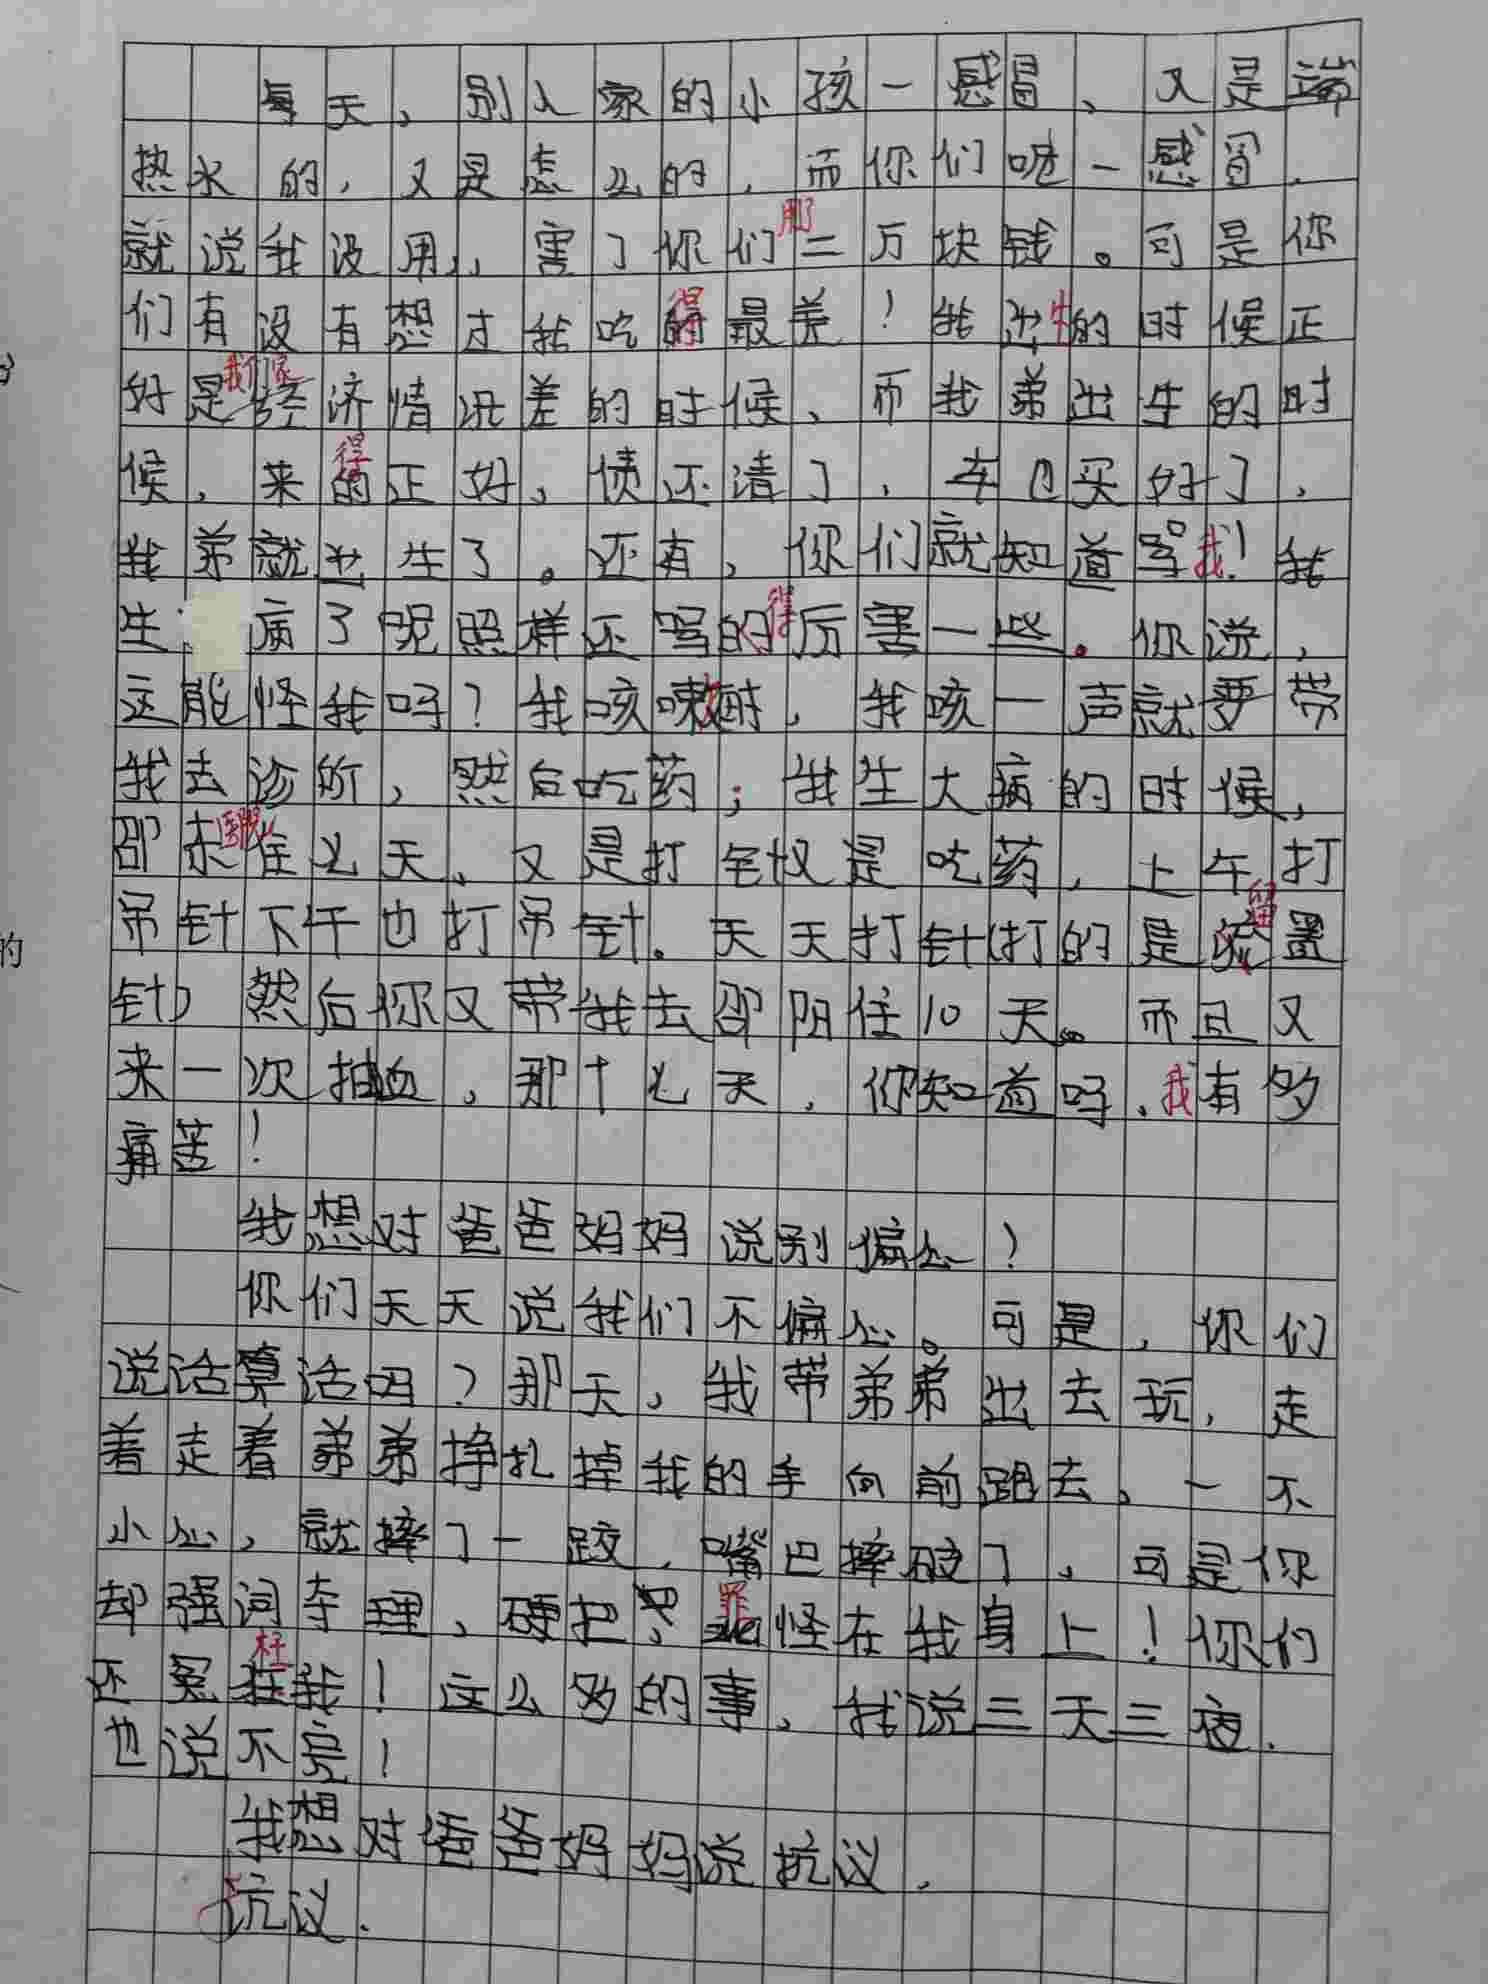 每天，别人家的小孩一感冒、又是端
热水的，又是怎么的，而你们呢一感冒，
就说我没用，害了你们那二万块钱。可是你
们有没有想过我吃得最差！我出生的时候正
好是我们家经济情况差的时候、而我弟出生的时
候，来得正好，债还清了，车也买好了，
我弟就出生了。还有，你们就知道骂我！我
生病了呢照样还骂的得厉害一些。你说，
这能怪我吗？我咳嗽时，我咳一声就要带
我去诊所，然后吃药；我生大病的时候，
邵东医院住七天、又是打针又是吃药，上午打
吊针下午也打吊针。天天打针(打的是留置
针) 然后你又带我去邵阳住10天。而且又
来一次抽血，那十七天，你知道吗，我有多
痛苦！
我想对爸爸妈妈说别偏心！
你们天天说我们不偏心。可是，你们
说话算话吗？那天，我带弟弟出去玩，走
着走着弟弟挣扎掉我的手向前跑去，一不
小心，就摔了一跤，嘴巴摔破了，可是你
却强词夺理，硬把罪怪在我身上！你们
还冤枉我！这么多的事，我说三天三夜.
也说不完！
我想对爸爸妈妈说抗议.
抗议.